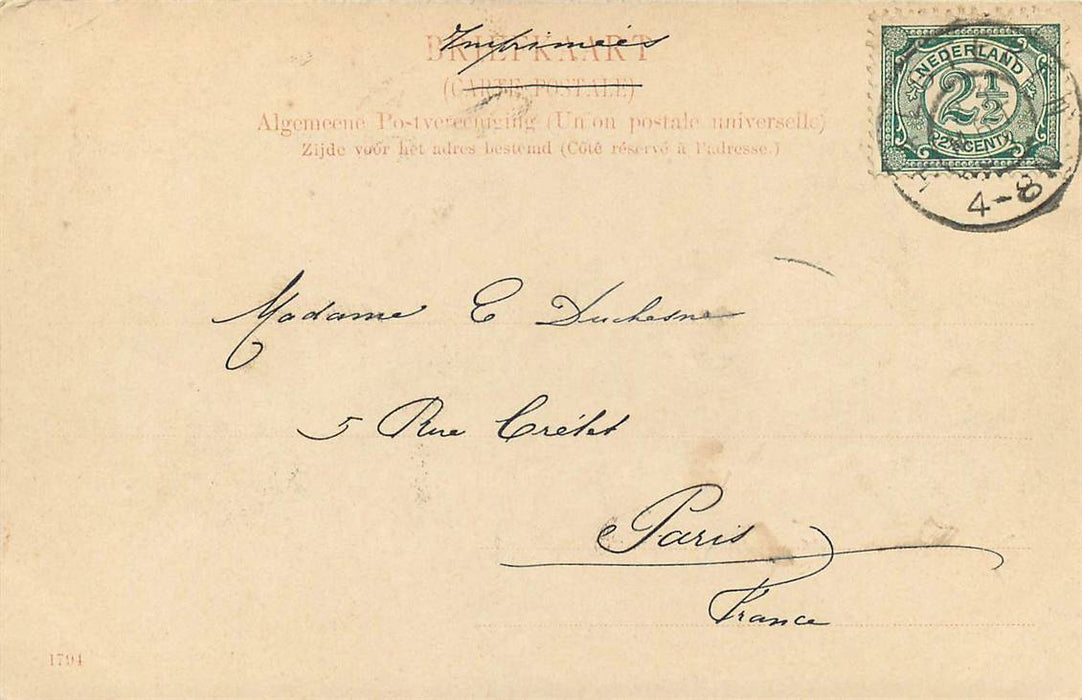 Imprimées
BRIEFKAART
(CARTE POSTALE)
Algemeene Postvereeniging (Union postale universelle)
Zijde voor het adres bestemd (Côté réservé à l'adresse.)
NEDERLAND
2½
2½ CENT
4-8
Madame E Duchesne
5 Rue Crétet
Paris
France
1794